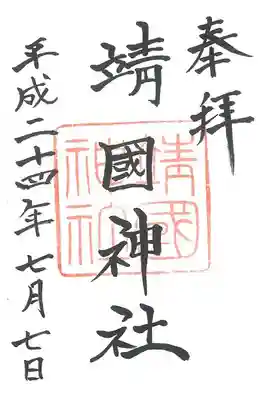 奉拝
靖國神社
平成二十四年七月七日
靖國
神社